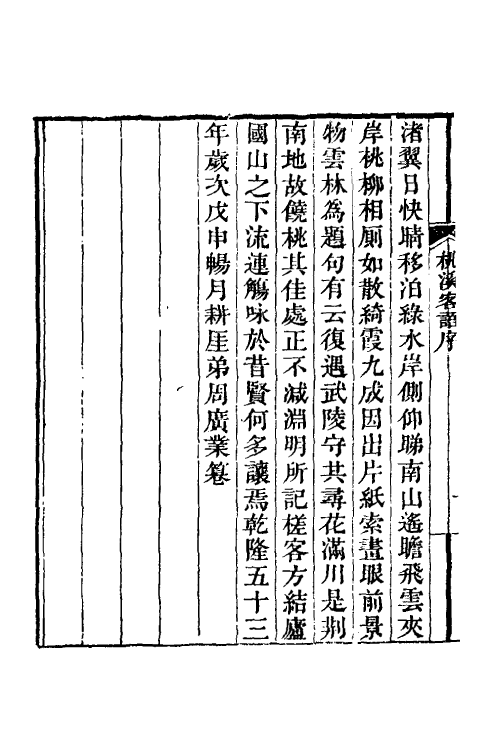 桃溪客語序
渚翼日快晴移泊綠水岸側仰睇南山遙瞻飛雲夾
岸桃柳相廁如散綺霞九成因出片紙索畫眼前景
物雲林為題句有云復遇武陵守共尋花滿川是荆
南地故饒桃其佳處正不減淵明所記槎客方結廬
國山之下流連觴咏於昔賢何多讓焉乾隆五十三
年歲次戊申暢月耕厓弟周廣業篹